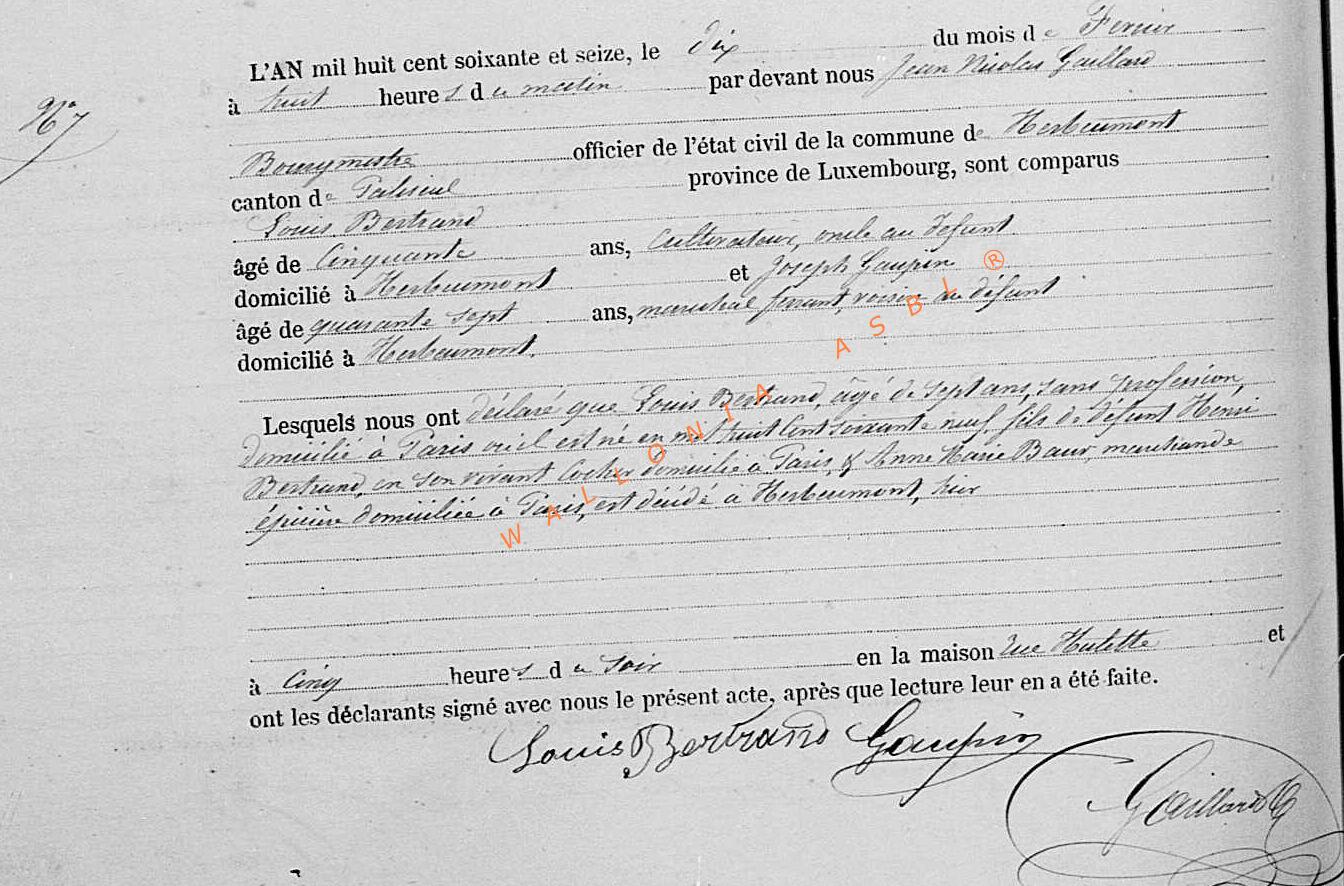 L'AN mil huit cent soixante et seize, le dix du mois de Fevrier
à huit heures du matin par devant nous Jean Nicolas Gaillard
N° 7
Bourgmestre officier de l'état civil de la commune de Herbeumont
canton de Paliseul province de Luxembourg, sont comparus
Louis Bertrand
âgé de Cinquante ans, Cultivateur, oncle au défunt
domicilié à Herbeumont et Joseph Gaupin
âgé de quarante sept ans, maréchal ferrant, voisin au défunt
domicilié à Herbeumont.
Lesquels nous ont déclaré que Louis Bertrand, âgé de sept ans, sans profession,
domicilié à Paris où il est né en mil huit Cent soixante neuf fils de défunt Henri
Bertrand, en son vivant Cocher domicilié à Paris, & Anne Marie Baur, marchande
épicière domiciliée à Paris, est décédé à Herbeumont, hier
à Cinq heures du soir en la maison rue Hulette et
ont les déclarants signé avec nous le présent acte, après que lecture leur en a été faite.
Louis Bertrand Gaupin
Gaillard
WALLONIA ASBL ®